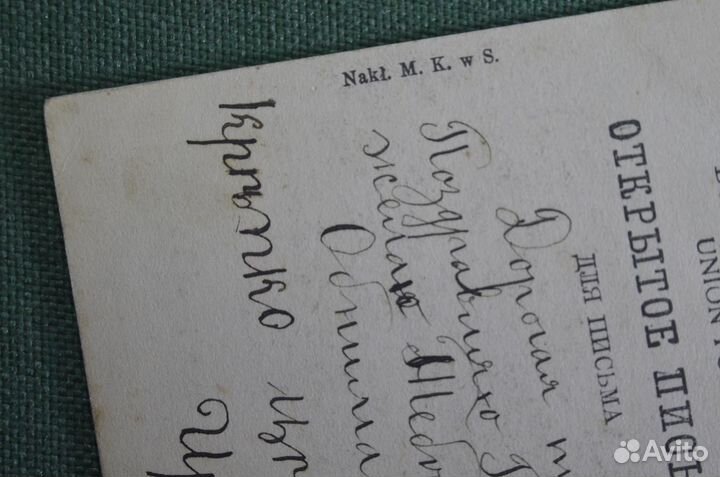 Nakł. M. K. w S.
UNION
ОТКРЫТОЕ ПИСЬ
ДЛЯ ПИСЬМА
Дорогая
Поздравляю
желаю Тебѣ
Обнима
крѣпко
Avito